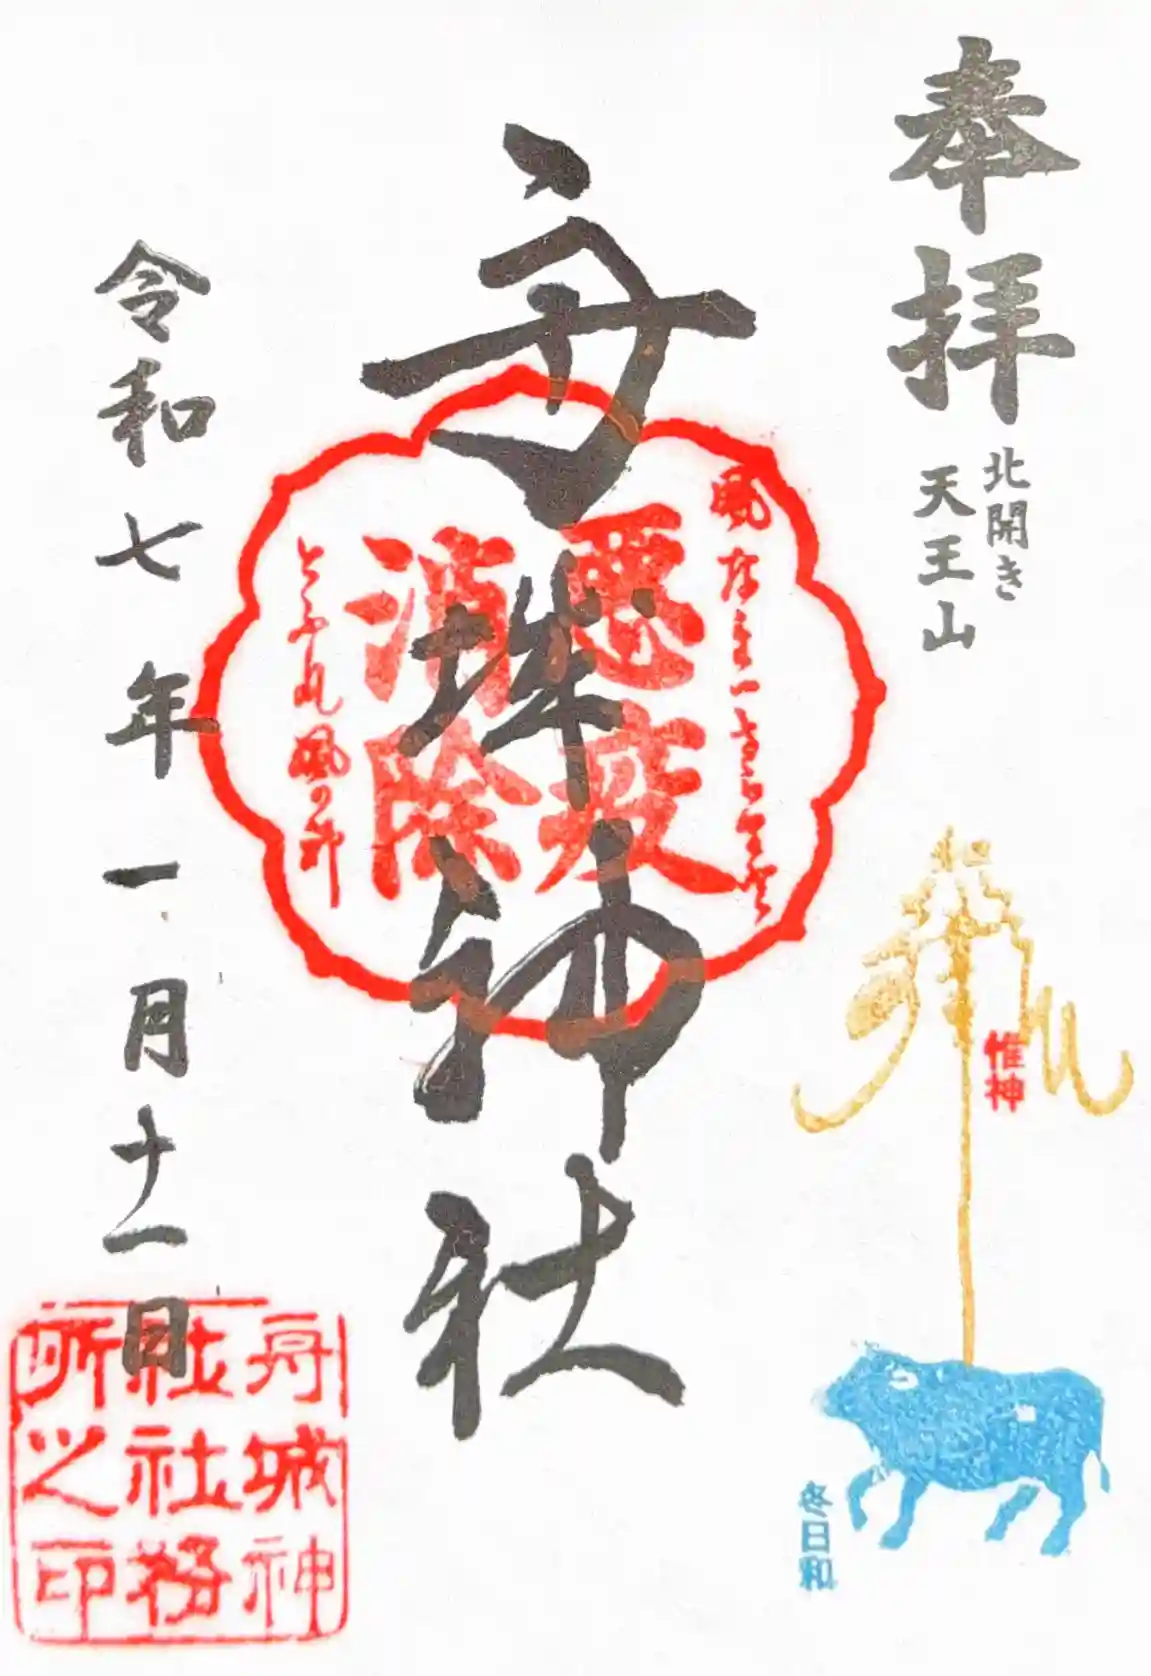 奉拝
北開き
天王山
惟神
冬日和
悪疫
消除
舟城神社
令和七年一月十一日
舟城神
社社務
所之印